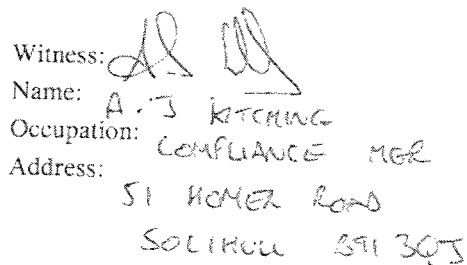 Witness:
Name: A.J KITCHING
Occupation: COMPLIANCE MGR
Address:
51 HOMER ROAD
SOLIHULL B91 3QJ